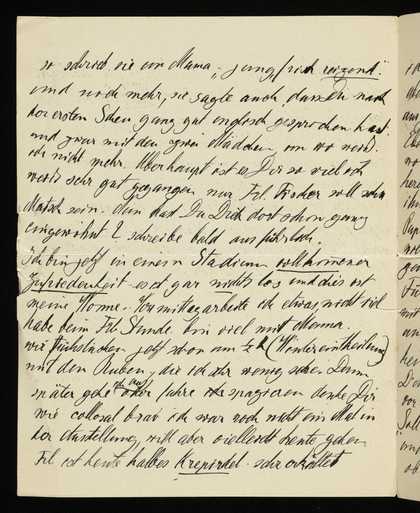 so schrieb sie von Mama „jung frisch reizend“
und noch mehr, sie sagte auch, dass Du nach
der ersten Scheu ganz gut englisch gesprochen hast
und zwar mit den zwei Mädchen, von wo weiss
ich nicht mehr. Überhaupt ist es Dir so viel ich
weiss sehr gut gegangen nur Frl. Fischer soll sehr
Matsch sein. Nun hast Du Dich dort schon ganz
eingewöhnt? schreibe bald ausführlich.
Ich bin jetzt in einem Stadium vollkommener
Zufriedenheit es ist gar nichts los und dies ist
meine Wonne. Vormittag arbeite ich etwas, nicht viel
habe dann Frl. Stunde. bin viel mit Mama.
wir frühstücken jetzt schon um ½ (Wintereintheilung)
mit den Buben, die ich sehr wenig sehe. Dann
später gehe oder fahre ich spazieren denke Dir
wie collosal brav ich war noch nicht ein Mal in
der Ausstellung, will aber vielleicht heute gehen
Frl. ist heute halbes Krepirkel sehr erkältet